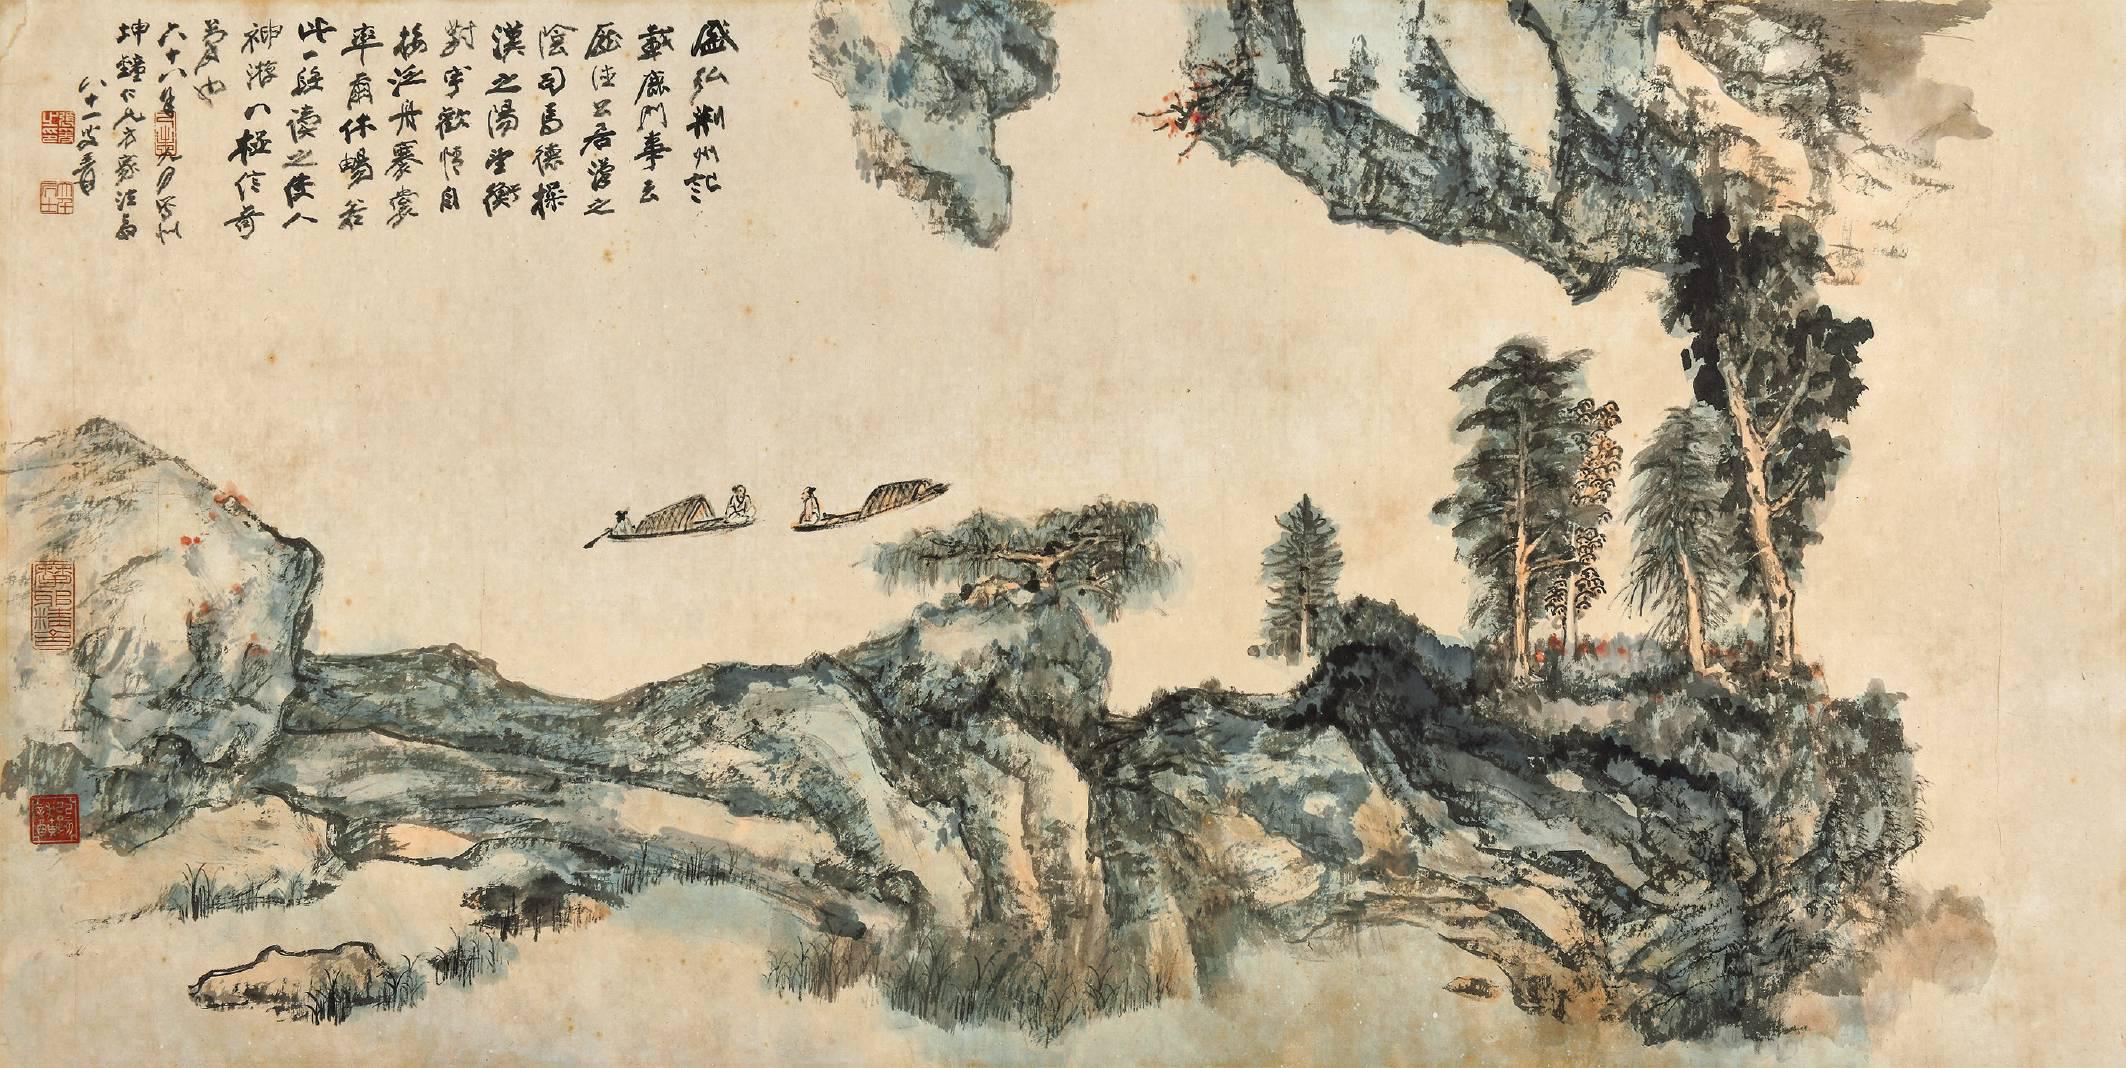 盛弘荆州記
載鹿門事云
龐德公居漢之
陰司馬德操
漢之陽望衡
對宇歡情自
接泛舟褰裳
率爾休暢若
此一段讀之使人
神游八極信奇
筆也
六十八年元月寫似
坤鐘仁兄方家法家
八十一叟爰